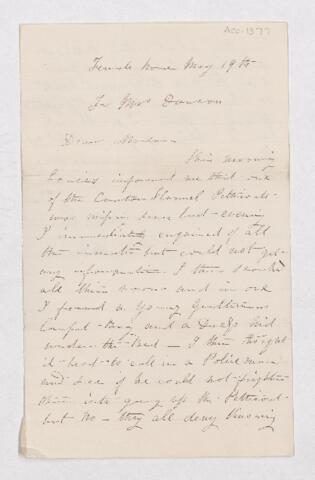 Acc. 1377
Female Home May 19th
To Mrs Dawson
Dear Madam
This morning
Louisa informed me that one
of the Canton Flannel Petticoats
was missing since last evening
I immediately enquired of all
the inmates but could not get
any information. I then searched
all their rooms and in one
I found a Young Gentlemans
Carpet Bag and a Dress hid
under the bed — I then thought
it best to call in a Police man
and see if he could not frighten
them into giving up the Petticoat
but no — they all deny knowing